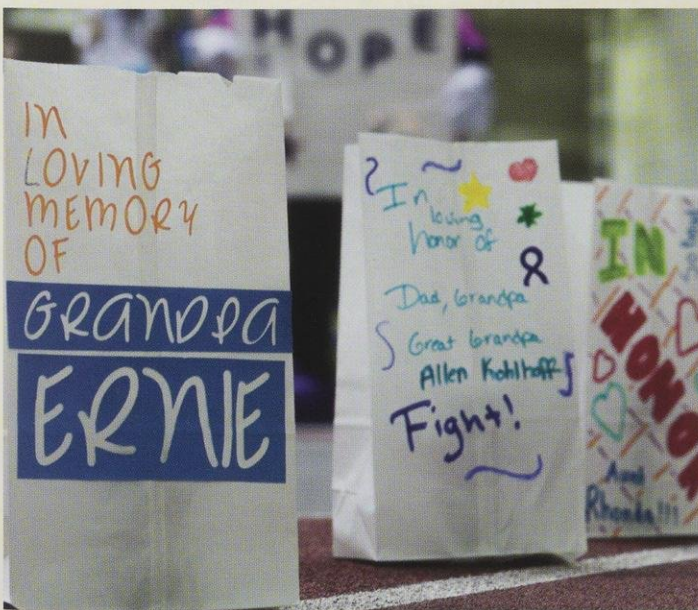 HOPE
IN
LOVING
MEMORY
OF
GRANDPA
ERNIE
In
loving
honor of
Dad, Grandpa
Great Grandpa
Allen Kohlhoff
Fight!
IN
HONOR
Rhonda!!!